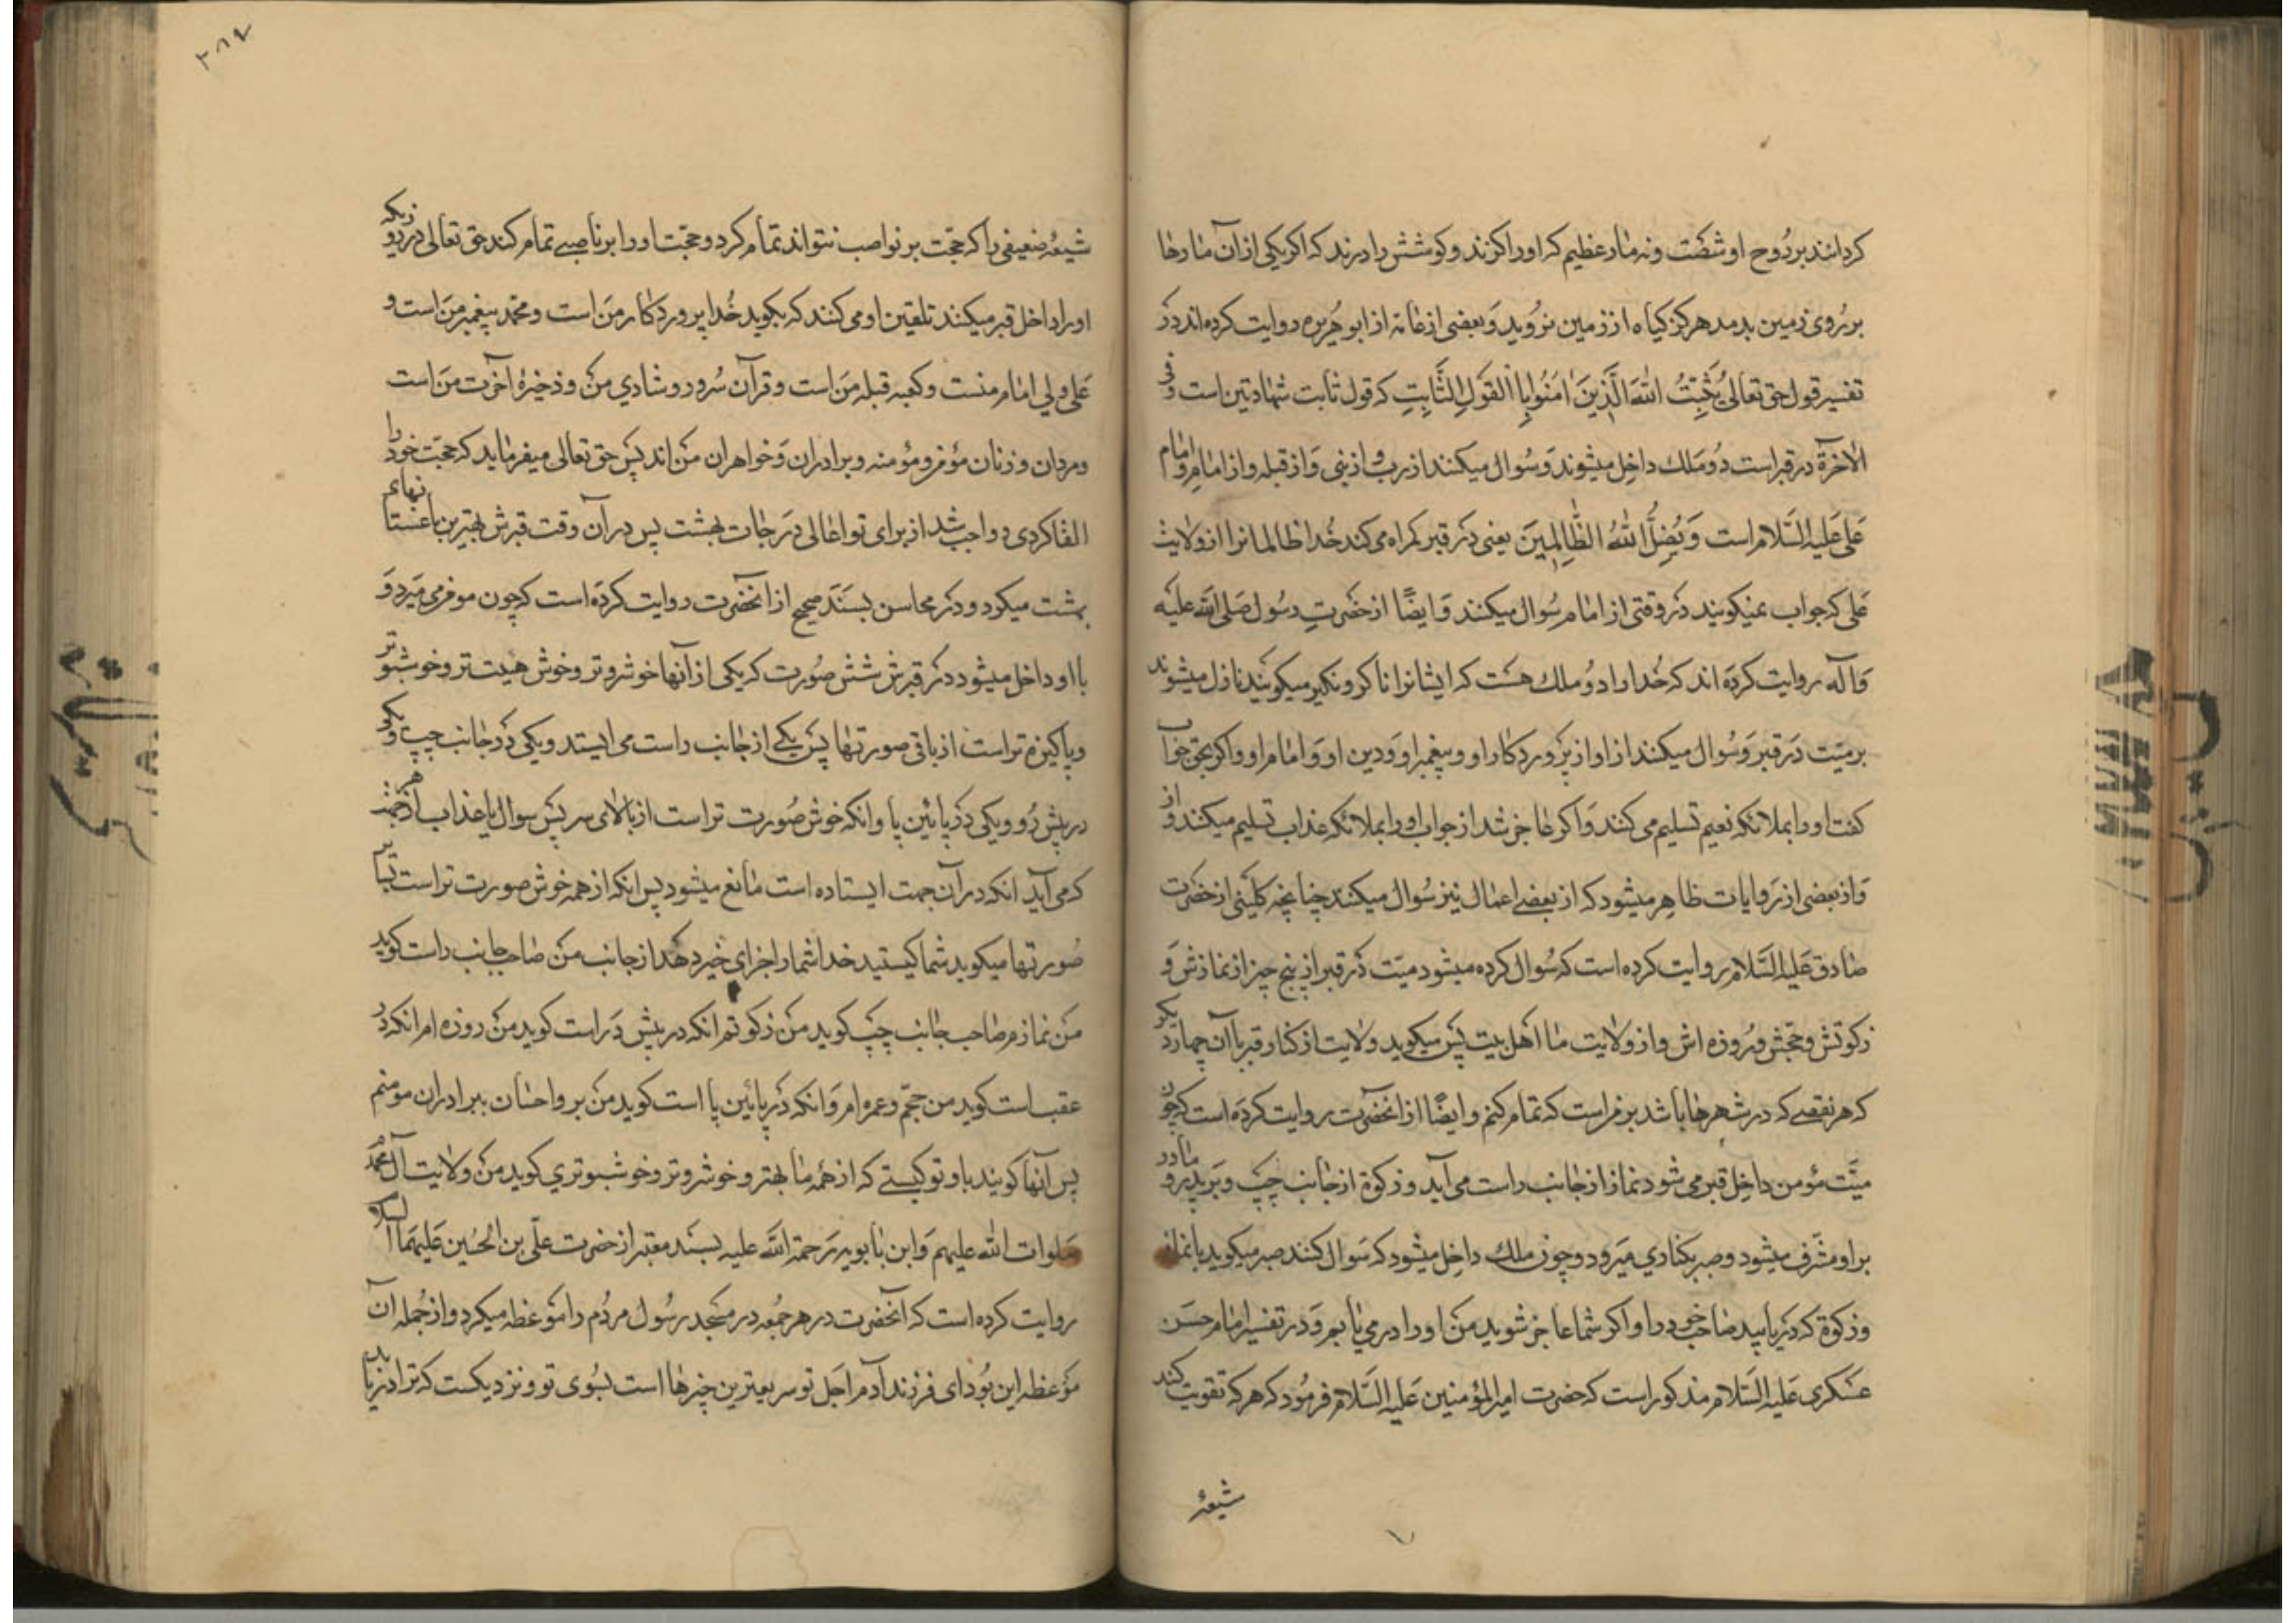 کردانند بر روح او شصت و نه مار عظیم که او را کزند و کوشش را درند که اکر یکی از آن مارها
بر روی زمین بدمد هرکز کیاه از زمین نروید و بعضی از عامه از ابو هریره روایت کرده اند در
تفسیر قول حق تعالی یُثَبِّتُ اللهُ الَّذِینَ اٰمَنُوا بِالْقَوْلِ الثَّابِتِ که قول ثابت شهادتین است و فی
الآخرة در قبر است دو ملك داخل میشوند و سوال میکنند از رب و از نبی و از قبله و از امام و امام
علی علیه السلام است وَ یُضِلُّ اللهُ الظَّالِمِینَ یعنی در قبر کمراه می کند خدا ظالمانرا از ولایت
علی که جواب نمیکویند در وقتی از امام سوال میکنند و ایضًا از حضرت رسول صلی الله علیه
و آله روایت کرده اند که خدا را دو ملك هست که ایشانرا ناکر و نکیر میکویند نازل میشوند
بر میّت در قبر و سوال میکنند از او از پروردکار او و پیغمبر او و دین او و امام او و اکر بحق جواب
کفت او را بملائکه نعیم تسلیم می کنند و اکر عاجز شد از جواب او را بملائکه عذاب تسلیم میکنند و از
و از بعضی از روایات ظاهر میشود که از بعضے اعمال نیز سوال میکنند چنانچه کلینی از حضرت
صادق علیه السلام روایت کرده است که سوال کرده میشود میّت در قبر از پنج چیز از نمازش و
زکوتش و حجش و روزه اش و از ولایت ما اهل بیت پس میکوید ولایت از کنار قبر با آن چهار دیکر
که هر نقصے که در شهرها باشد بر من است که تمام کنم و ایضًا از انحضرت روایت کرده است که چون
میّت مؤمن داخل قبر می شود نماز از جانب راست می آید و زکوة از جانب چپ و بر پدر و مادر
بر او مشرف میشود و صبر بکناری میرود و چون ملك داخل میشود که سوال کنند صبر میکوید با نماز
و زکوة که دریابید صاحب خود را و اکر شما عاجز شوید من او را در می یابم و در تفسیر امام حسن
عسکری علیه السلام مذکور است که حضرت امیرالمؤمنین علیه السلام فرمود که هر که تقویت کند
شیعۀ
۲۸۴
شیعۀ ضعیفی را که حجّت بر نواصب نتواند تمام کرد و حجّت او را بر ناصبے تمام کند حق تعالی در روزیکه
او را داخل قبر میکنند تلقین او می کنند که بکوید خدا پروردکار من است و محمد پیغمبر من است و
علی ولی امام منست و کعبه قبله من است و قرآن سرور و شادی من و ذخیرۀ آخرت من است
و مردان و زنان مؤمن و مؤمنه و برادران و خواهران من اند پس حق تعالی میفرماید که حجّت خود را
القا کردی و واجب شد از برای تو اعالی درجات بهشت پس در آن وقت قبرش بهترین باغستانهای
بهشت میکردد و در محاسن بسند صحیح از انحضرت روایت کرده است که چون مومن می میرد و
با او داخل میشود در قبرش شش صورت که یکی از آنها خوشروتر و خوش هیئت تر و خوشبوتر
و پاکیزه تر است از باقی صورتها پس یکے از جانب راست می ایستد و یکی در جانب چپ و یکی
در پیش رو و یکی در پائین پا و انکه خوش صورت تر است از بالای سر پس سوال یا عذاب از هر جهت
که می آید انکه در آن جهت ایستاده است مانع میشود پس انکه از همه خوش صورت تر است بسایر
صورتها میکوید شما کیستید خدا شما را جزای خیر دهد از جانب من صاحب جانب راست کوید
من نمازم صاحب جانب چپ کوید من زکوتم انکه در پیش در است کوید من روزه ام انکه در
عقب است کوید من حجّم و عمره ام و انکه در پائین پا است کوید من بر و احسان ببرادران مومنم
پس آنها کویند باو تو کیستے که از همه ما بهتر و خوشروتر و خوشبوتری کوید من ولایت آل محمد
صلوات الله علیهم و ابن بابویه رحمة الله علیه بسند معتبر از حضرت علی بن الحسین علیهما السلام
روایت کرده است که انحضرت در هر جمعه در مسجد رسول مردم را موعظه میکرد و از جمله آن
موعظه این بود ای فرزند آدم اجل تو سریعترین چیزها است بسوی تو و نزدیکست که ترا دریابد